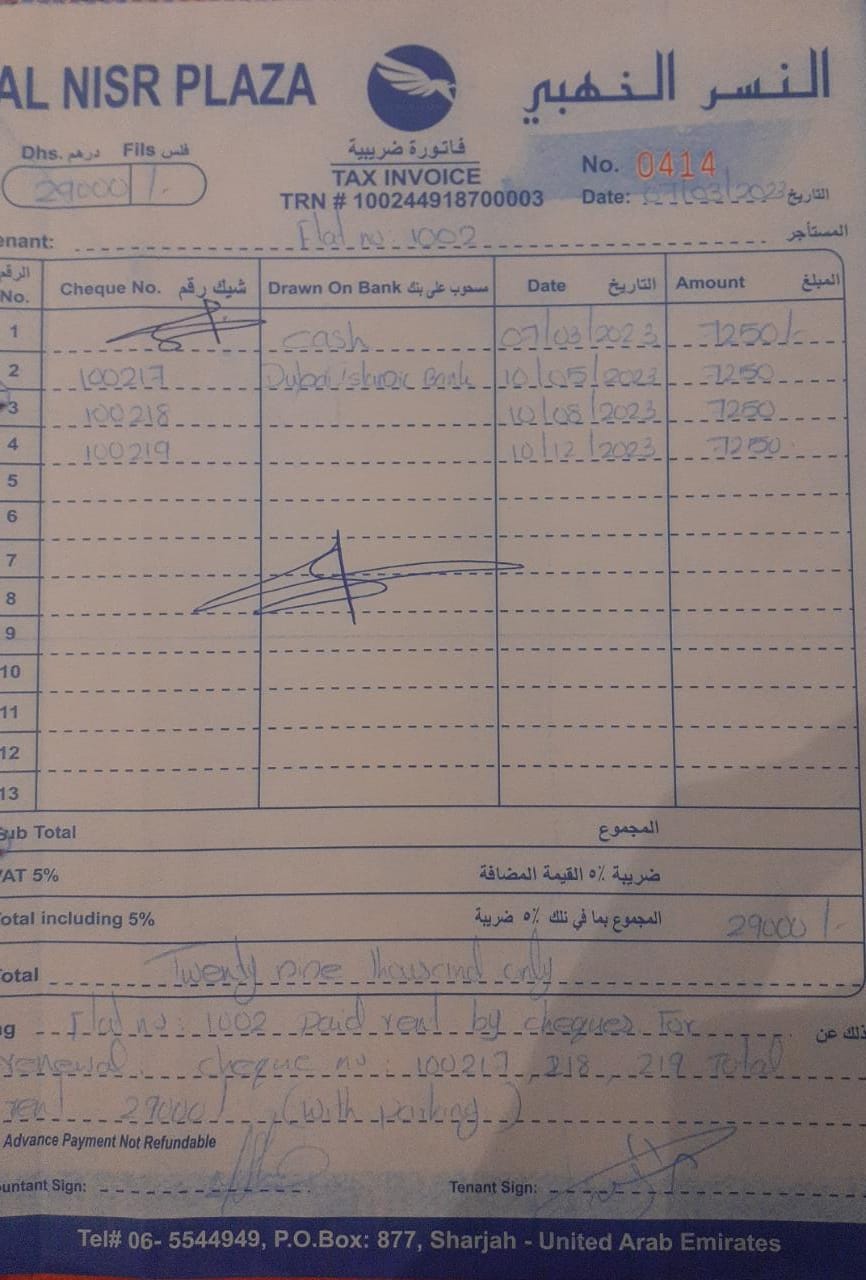 AL NISR PLAZA النسر الذهبي
Dhs. درهم Fils فلس
29000 /-
فاتورة ضريبية
TAX INVOICE
TRN # 100244918700003
No. 0414
Date: 07/03/2023 التاريخ
enant: Flat no. 1002 المستأجر
الرقم No. Cheque No. شيك رقم Drawn On Bank مسحوب على بنك Date التاريخ Amount المبلغ
1 cash 07/03/2023 7250/-
2 100217 Dubai Islamic Bank 10/05/2023 7250
3 100218 10/08/2023 7250
4 100219 10/12/2023 7250
5
6
7
8
9
10
11
12
13
Sub Total المجموع
VAT 5% ضريبة ٥٪ القيمة المضافة
otal including 5% المجموع بما في ذلك ٥٪ ضريبة 29000/-
otal Twenty nine thousand only
g Flat no: 1002 paid rent by cheques For ذلك عن
renewal. cheque no: 100217, 218, 219 Total
rent 29000/ (with parking)
Advance Payment Not Refundable
ountant Sign: Tenant Sign:
Tel# 06- 5544949, P.O.Box: 877, Sharjah - United Arab Emirates